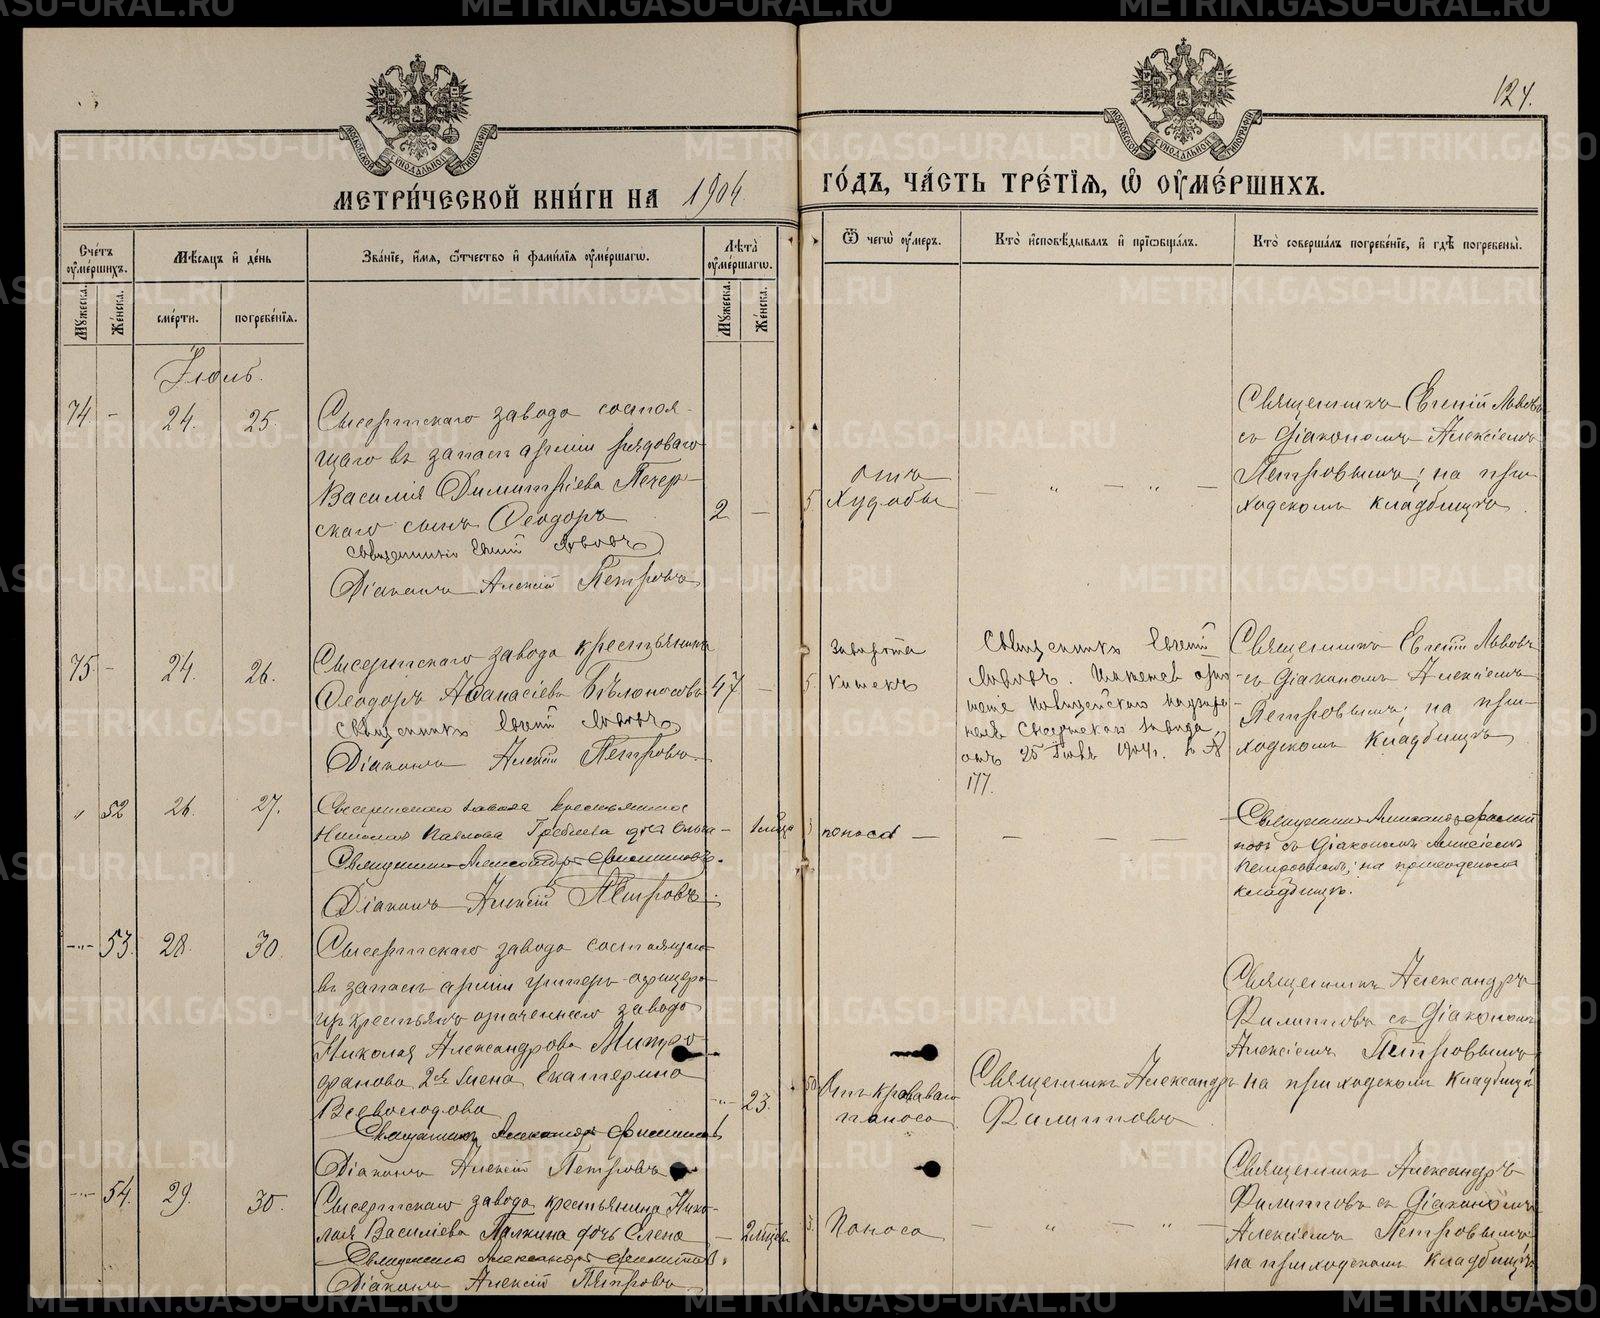 124.
МЕТРИ́ЧЕСКОЙ КНИ́ГИ НА 1904
ГО́ДЪ, ЧА́СТЬ ТРЕ́ТІЯ, Ѡ ОУМЕ́РШИХЪ.
Сче́тъ оуме́ршихъ.
Мѣсяцъ и де́нь
Зва́ніе, и́мя, ѻ́тчество и фами́лія оуме́ршагѡ.
Лѣта̀ оуме́ршагѡ.
Ѿ чегѡ̀ оу́меръ.
Кто̀ исповѣ́дывалъ и прїѡбща́лъ.
Кто̀ соверша́лъ погребе́ніе, и гдѣ̀ погребены̀.
Му́жеска.
Же́нска.
сме́рти.
погребе́нія.
Му́жеска.
Же́нска.
Іюль.
74 - 24. 25.
Сысертскаго завода состоя-
щаго въ запасѣ арміи рядоваго
Василія Димитріева Печер-
скаго сынъ Ѳеодоръ
Священникъ Евгеній Львовъ
Діаконъ Алексій Петровъ
2 —
5. Отъ
худобы
— „ — „ —
Священникъ Евгеній Львовъ
съ діакономъ Алексіемъ
Петровымъ; на при-
ходскомъ кладбищѣ.
75 - 24. 26.
Сысертскаго завода крестьянинъ
Ѳеодоръ Аѳанасіевъ Бѣлоносовъ
Священникъ Евгеній Львовъ
Діаконъ Алексій Петровъ.
47 —
5. Заворота
кишекъ
Священникъ Евгеній
Львовъ.
Полицейскаго надзира-
теля Сысертскаго завода,
отъ 25 1904 г. за №
177.
Священникъ Евгеній Львовъ
съ діакономъ Алексіемъ
Петровымъ; на при-
ходскомъ кладбищѣ.
„ 52 26. 27.
Сысертскаго завода крестьянина
Николая Павлова дочь Ольга
Священникъ Александръ Филипповъ.
Діаконъ Алексій Петровъ.
поноса —
— —
Священникъ Александръ Филип-
повъ съ діакономъ Алексіемъ
Петровымъ; на приходскомъ
кладбищѣ.
-„- 53. 28. 30.
Сысертскаго завода состоящаго
въ запасѣ арміи унтеръ-офицера
изъ крестьянъ означеннаго завода
Николая Александрова Митро-
фанова жена Екатерина
Всеволодова
Священникъ Александръ Филипповъ
Діаконъ Алексій Петровъ
-„- 23.
Отъ кроваваго
поноса
Священникъ Александръ
Филипповъ
Священникъ Александръ
Филипповъ съ діакономъ
Алексіемъ Петровымъ
на приходскомъ кладбищѣ
-„- 54. 29. 30.
Сысертскаго завода крестьянина Нико-
лая Василіева Палкина дочь Елена
Священникъ Александръ Филипповъ.
Діаконъ Алексій Петровъ.
— 2 мѣсяц.
3. Поноса
— „ — „ —
Священникъ Александръ
Филипповъ съ діакономъ
Алексіемъ Петровымъ
на приходскомъ кладбищѣ
METRIKI.GASO-URAL.RU